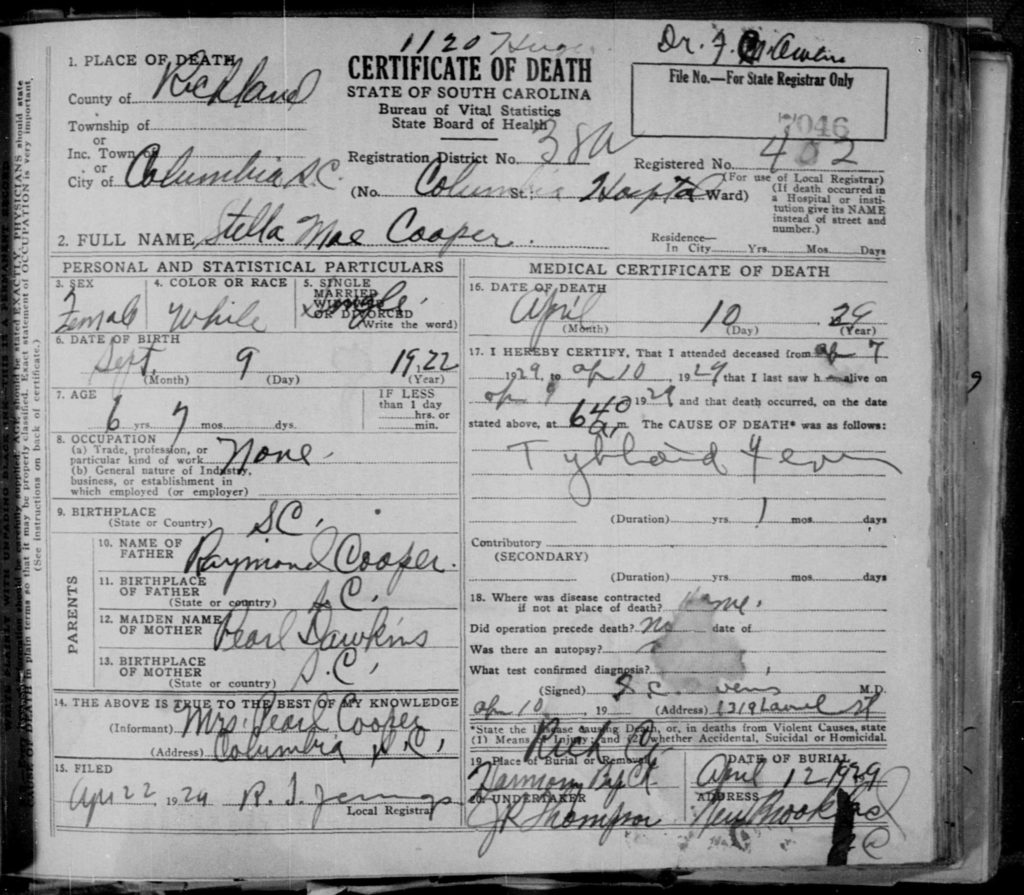 1120 Huger
Dr. F
1. PLACE OF DEATH
County of Richland
Township of
or
Inc. Town of
or
City of Columbia S.C.
CERTIFICATE OF DEATH
STATE OF SOUTH CAROLINA
Bureau of Vital Statistics
State Board of Health
File No.—For State Registrar Only
7046
Registration District No. 38A
Registered No. 402
(For use of Local Registrar)
(No. Columbia St.; Hospital Ward)
(If death occurred in
a Hospital or insti-
tution give its NAME
instead of street and
number.)
2. FULL NAME Stella Mae Cooper.
Residence—
In City Yrs. Mos. Days
PERSONAL AND STATISTICAL PARTICULARS
3. SEX
Female
4. COLOR OR RACE
White
5. SINGLE
MARRIED
WIDOWED
OR DIVORCED
Single.
(Write the word)
6. DATE OF BIRTH
Sept. 9 1922
(Month) (Day) (Year)
7. AGE
6 yrs. 7 mos. dys.
IF LESS
than 1 day
hrs. or
min.
8. OCCUPATION
(a) Trade, profession, or
particular kind of work None.
(b) General nature of Industry,
business, or establishment in
which employed (or employer)
9. BIRTHPLACE
(State or Country) S.C.
PARENTS
10. NAME OF
FATHER Raymond Cooper.
11. BIRTHPLACE
OF FATHER
(State or country) S.C.
12. MAIDEN NAME
OF MOTHER Pearl Dawkins
13. BIRTHPLACE
OF MOTHER
(State or country) S.C.
14. THE ABOVE IS TRUE TO THE BEST OF MY KNOWLEDGE
(Informant) Mrs. Pearl Cooper
(Address) Columbia S.C.
15. FILED
Apr 22 1929 R. J. Jennings
Local Registrar
MEDICAL CERTIFICATE OF DEATH
16. DATE OF DEATH
April 10 29
(Month) (Day) (Year)
17. I HEREBY CERTIFY, That I attended deceased from Apr 7
1929, to Apr 10, 1929 that I last saw h alive on
Apr 9 1929 and that death occurred, on the date
stated above, at 640 a m. The CAUSE OF DEATH* was as follows:
Typhoid Fever
(Duration) yrs. 1 mos. days
Contributory
(SECONDARY)
(Duration) yrs. mos. days
18. Where was disease contracted
if not at place of death? Home.
Did operation precede death? No date of
Was there an autopsy?
What test confirmed diagnosis?
(Signed) M.D.
Apr 10, 19 (Address) 1319 Laurel St
*State the Disease causing Death, or, in deaths from Violent Causes, state
(1) Means of Injury; and (2) whether Accidental, Suicidal or Homicidal.
Rich Co.
19. Place of Burial or Removal
Harmony
DATE OF BURIAL
April 12 1929
20. UNDERTAKER
J R Thompson
ADDRESS
New Brookland
S C